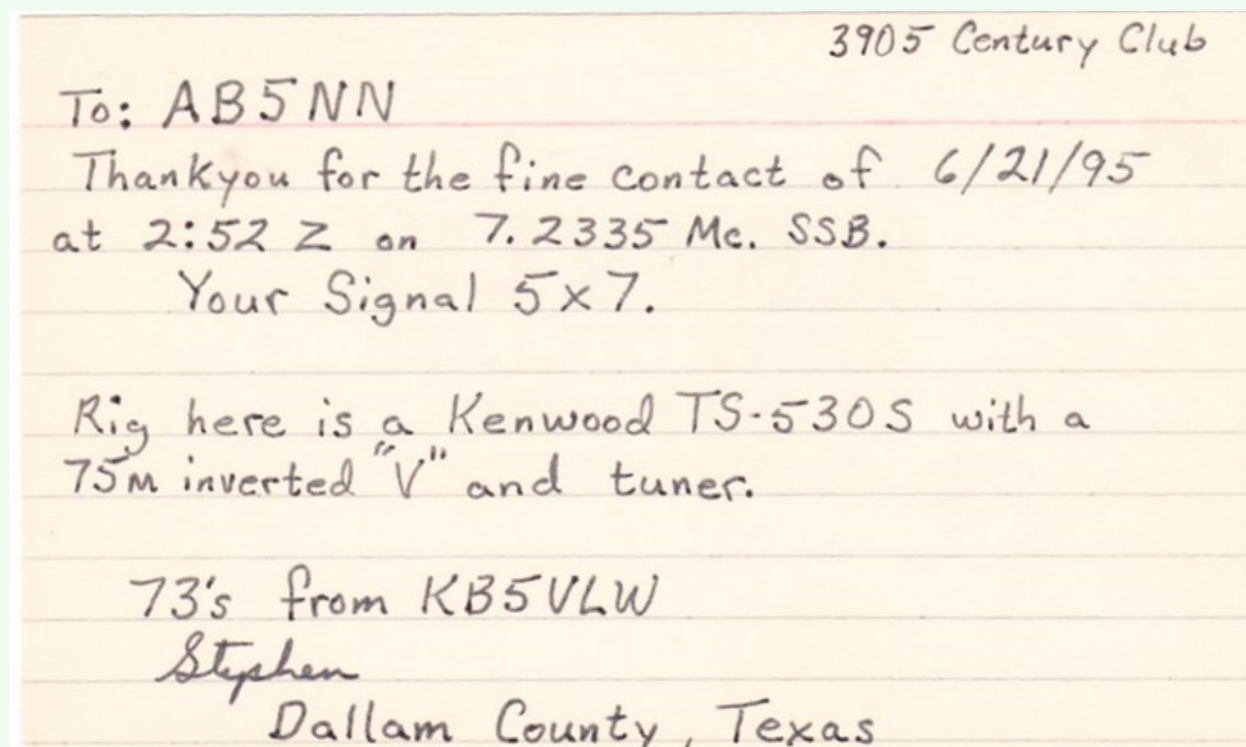 3905 Century Club
To: AB5NN
Thankyou for the fine contact of 6/21/95
at 2:52 Z on 7.2335 Mc. SSB.
Your Signal 5x7.
Rig here is a Kenwood TS-530S with a
75M inverted "V" and tuner.
73's from KB5VLW
Stephen
Dallam County, Texas